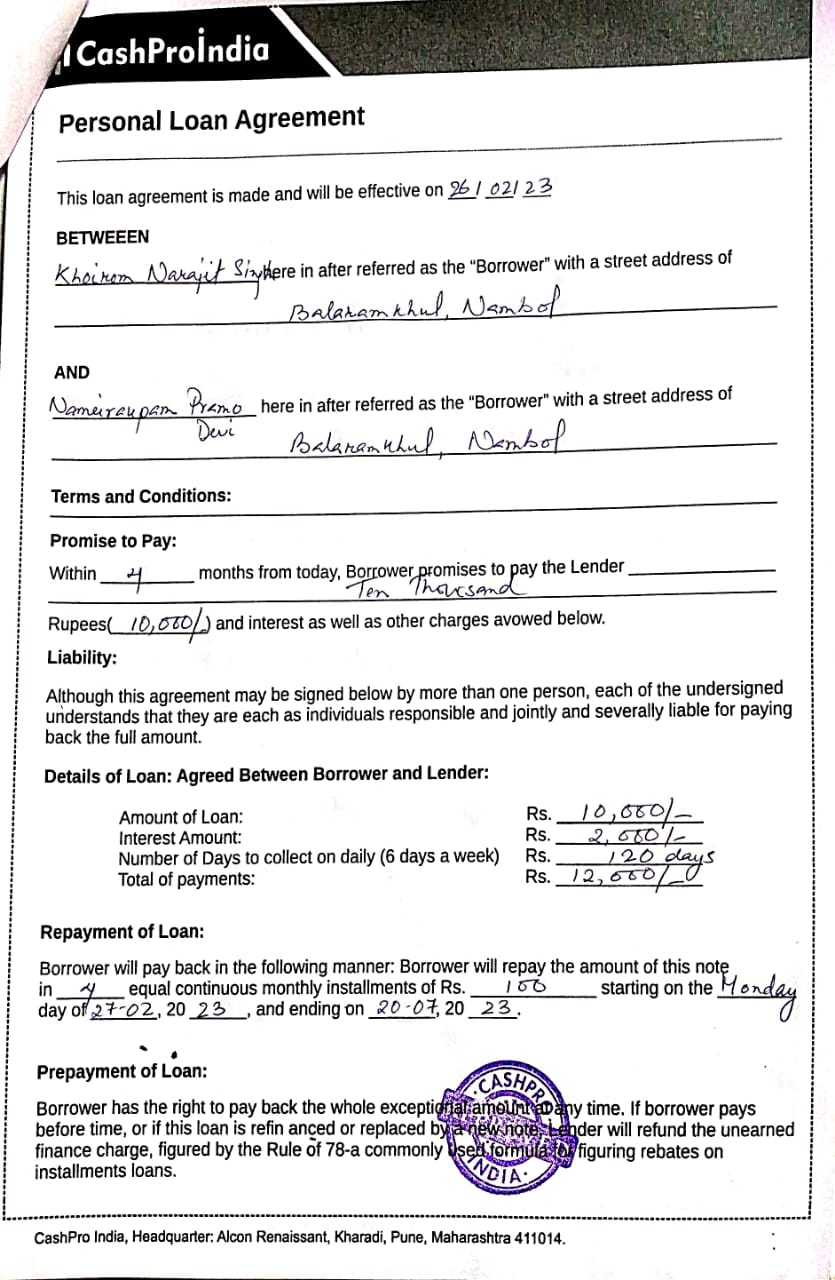 CashProİndia
Personal Loan Agreement
This loan agreement is made and will be effective on 26/02/23
BETWEEEN
Khoirom Narajit Singh here in after referred as the “Borrower” with a street address of
Balaramkhul, Nambol
AND
Nameirakpam Pramo here in after referred as the “Borrower” with a street address of
Devi
Balaramkhul, Nambol
Terms and Conditions:
Promise to Pay:
Within 4 months from today, Borrower promises to pay the Lender
Ten Thousand
Rupees( 10,000/-) and interest as well as other charges avowed below.
Liability:
Although this agreement may be signed below by more than one person, each of the undersigned
understands that they are each as individuals responsible and jointly and severally liable for paying
back the full amount.
Details of Loan: Agreed Between Borrower and Lender:
Amount of Loan: Rs. 10,000/-
Interest Amount: Rs. 2,000/-
Number of Days to collect on daily (6 days a week) Rs. 120 days
Total of payments: Rs. 12,000/-
Repayment of Loan:
Borrower will pay back in the following manner: Borrower will repay the amount of this note
in 4 equal continuous monthly installments of Rs. 100 starting on the Monday
day of 27-02, 20 23, and ending on 20-07, 20 23.
Prepayment of Loan:
Borrower has the right to pay back the whole exceptional amount at any time. If borrower pays
before time, or if this loan is refin anced or replaced by a new note, Lender will refund the unearned
finance charge, figured by the Rule of 78-a commonly used formula for figuring rebates on
installments loans.
CASHPRO
INDIA
CashPro India, Headquarter: Alcon Renaissant, Kharadi, Pune, Maharashtra 411014.